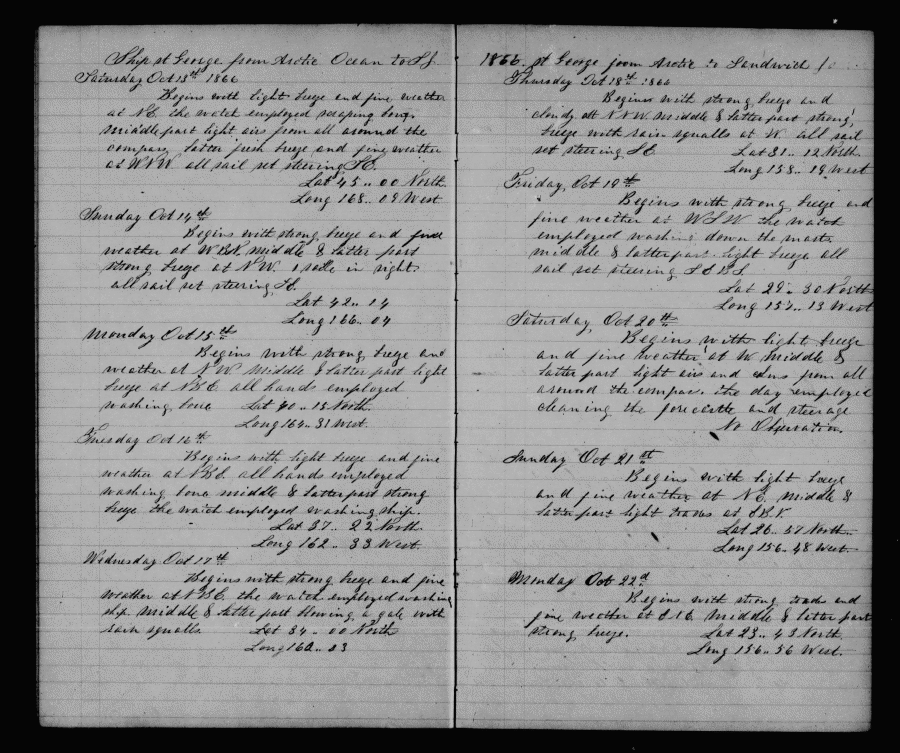 Ship St George from Arctic Ocean to S I
Saturday Oct 13th 1866
Begins with light breeze and fine weather
at NE the watch employed scraping bone
middle part light airs from all around the
compass latter fresh breeze and fine weather
at WNW all sail set steering SE.
Lat 45 .. 00 North
Long 168 .. 09 West
Sunday Oct 14th
Begins with strong breeze and fine
weather at WBN middle & latter part
strong breeze at NW in sight
all sail set steering SE
Lat 42 .. 14
Long 166 .. 04
Monday Oct 15th
Begins with strong breeze and
weather at NW Middle & latter part light
breeze at NBE all hands employed
washing bone Lat 40 .. 15 North
Long 164 .. 31 West.
Tuesday Oct 16th
Begins with light breeze and fine
weather at NBE all hands employed
washing bone middle & latter part strong
breeze the watch employed washing ship.
Lat 37 .. 22 North
Long 162 .. 33 West
Wednesday Oct 17th
Begins with strong breeze and fine
weather at NBE the watch employed washing
ship. middle & latter part blowing a gale with
rain squalls Lat 34 .. 00 North
Long 160 .. 03
1866. St George from Arctic to Sandwich
Thursday Oct 18th 1866
Begins with strong breeze and
cloudy at NNW middle & latter part strong
breeze with rain squalls at W. all sail
set steering SE. Lat 31 .. 12 North
Long 158 .. 19 West
Friday, Oct 19th
Begins with strong breeze and
fine weather at WSW the watch
employed washing down the masts
middle & latter part light breeze all
sail set steering SEBS
Lat 29 .. 30 North
Long 157 .. 13 West
Saturday, Oct 20th
Begins with light breeze
and fine weather at W middle &
latter part light airs and calms from all
around the compass. the day employed
cleaning the forecastle and steerage
No Observation.
Sunday Oct 21st
Begins with light breeze
and fine weather at NE. middle &
latter part light trades at EBN
Lat 26 .. 57 North
Long 156 .. 48 West
Monday Oct 22d
Begins with strong trades and
fine weather at ENE middle & latter part
strong breeze. Lat 23 .. 43 North
Long 156 .. 56 West.